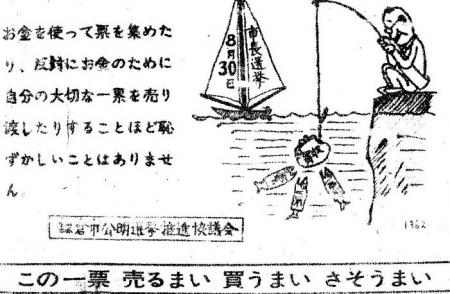 お金を使って票を集めた
り、反対にお金のために
自分の大切な一票を売り
渡したりすることほど恥
ずかしいことはありませ
ん
市長選挙
8月30日
買収
1962
鎌倉市公明選挙推進協議会
この一票 売るまい 買うまい さそうまい